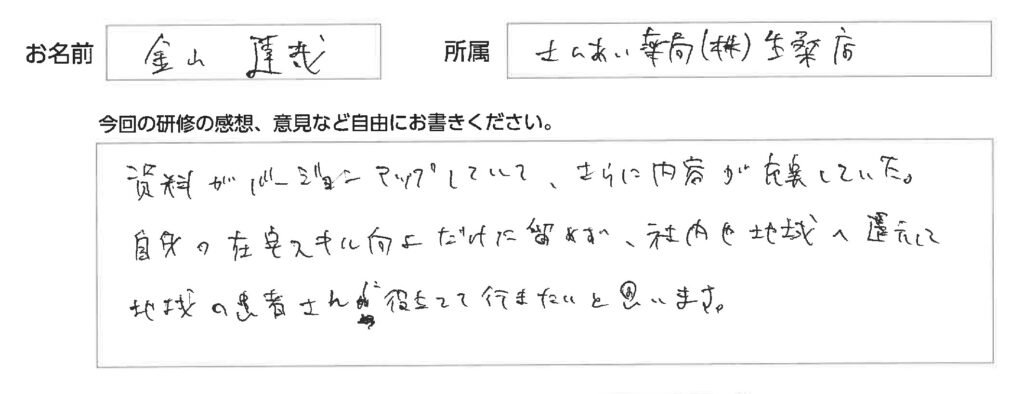 お名前 金山 達哉 所属 さんあい薬局(株)生桑店
今回の研修の感想、意見など自由にお書きください。
資料がバージョンアップしていて、さらに内容が充実していた。
自身の在宅スキル向上だけに留めず、社内や地域へ還元して
地域の患者さんが役立てて行きたいと思います。